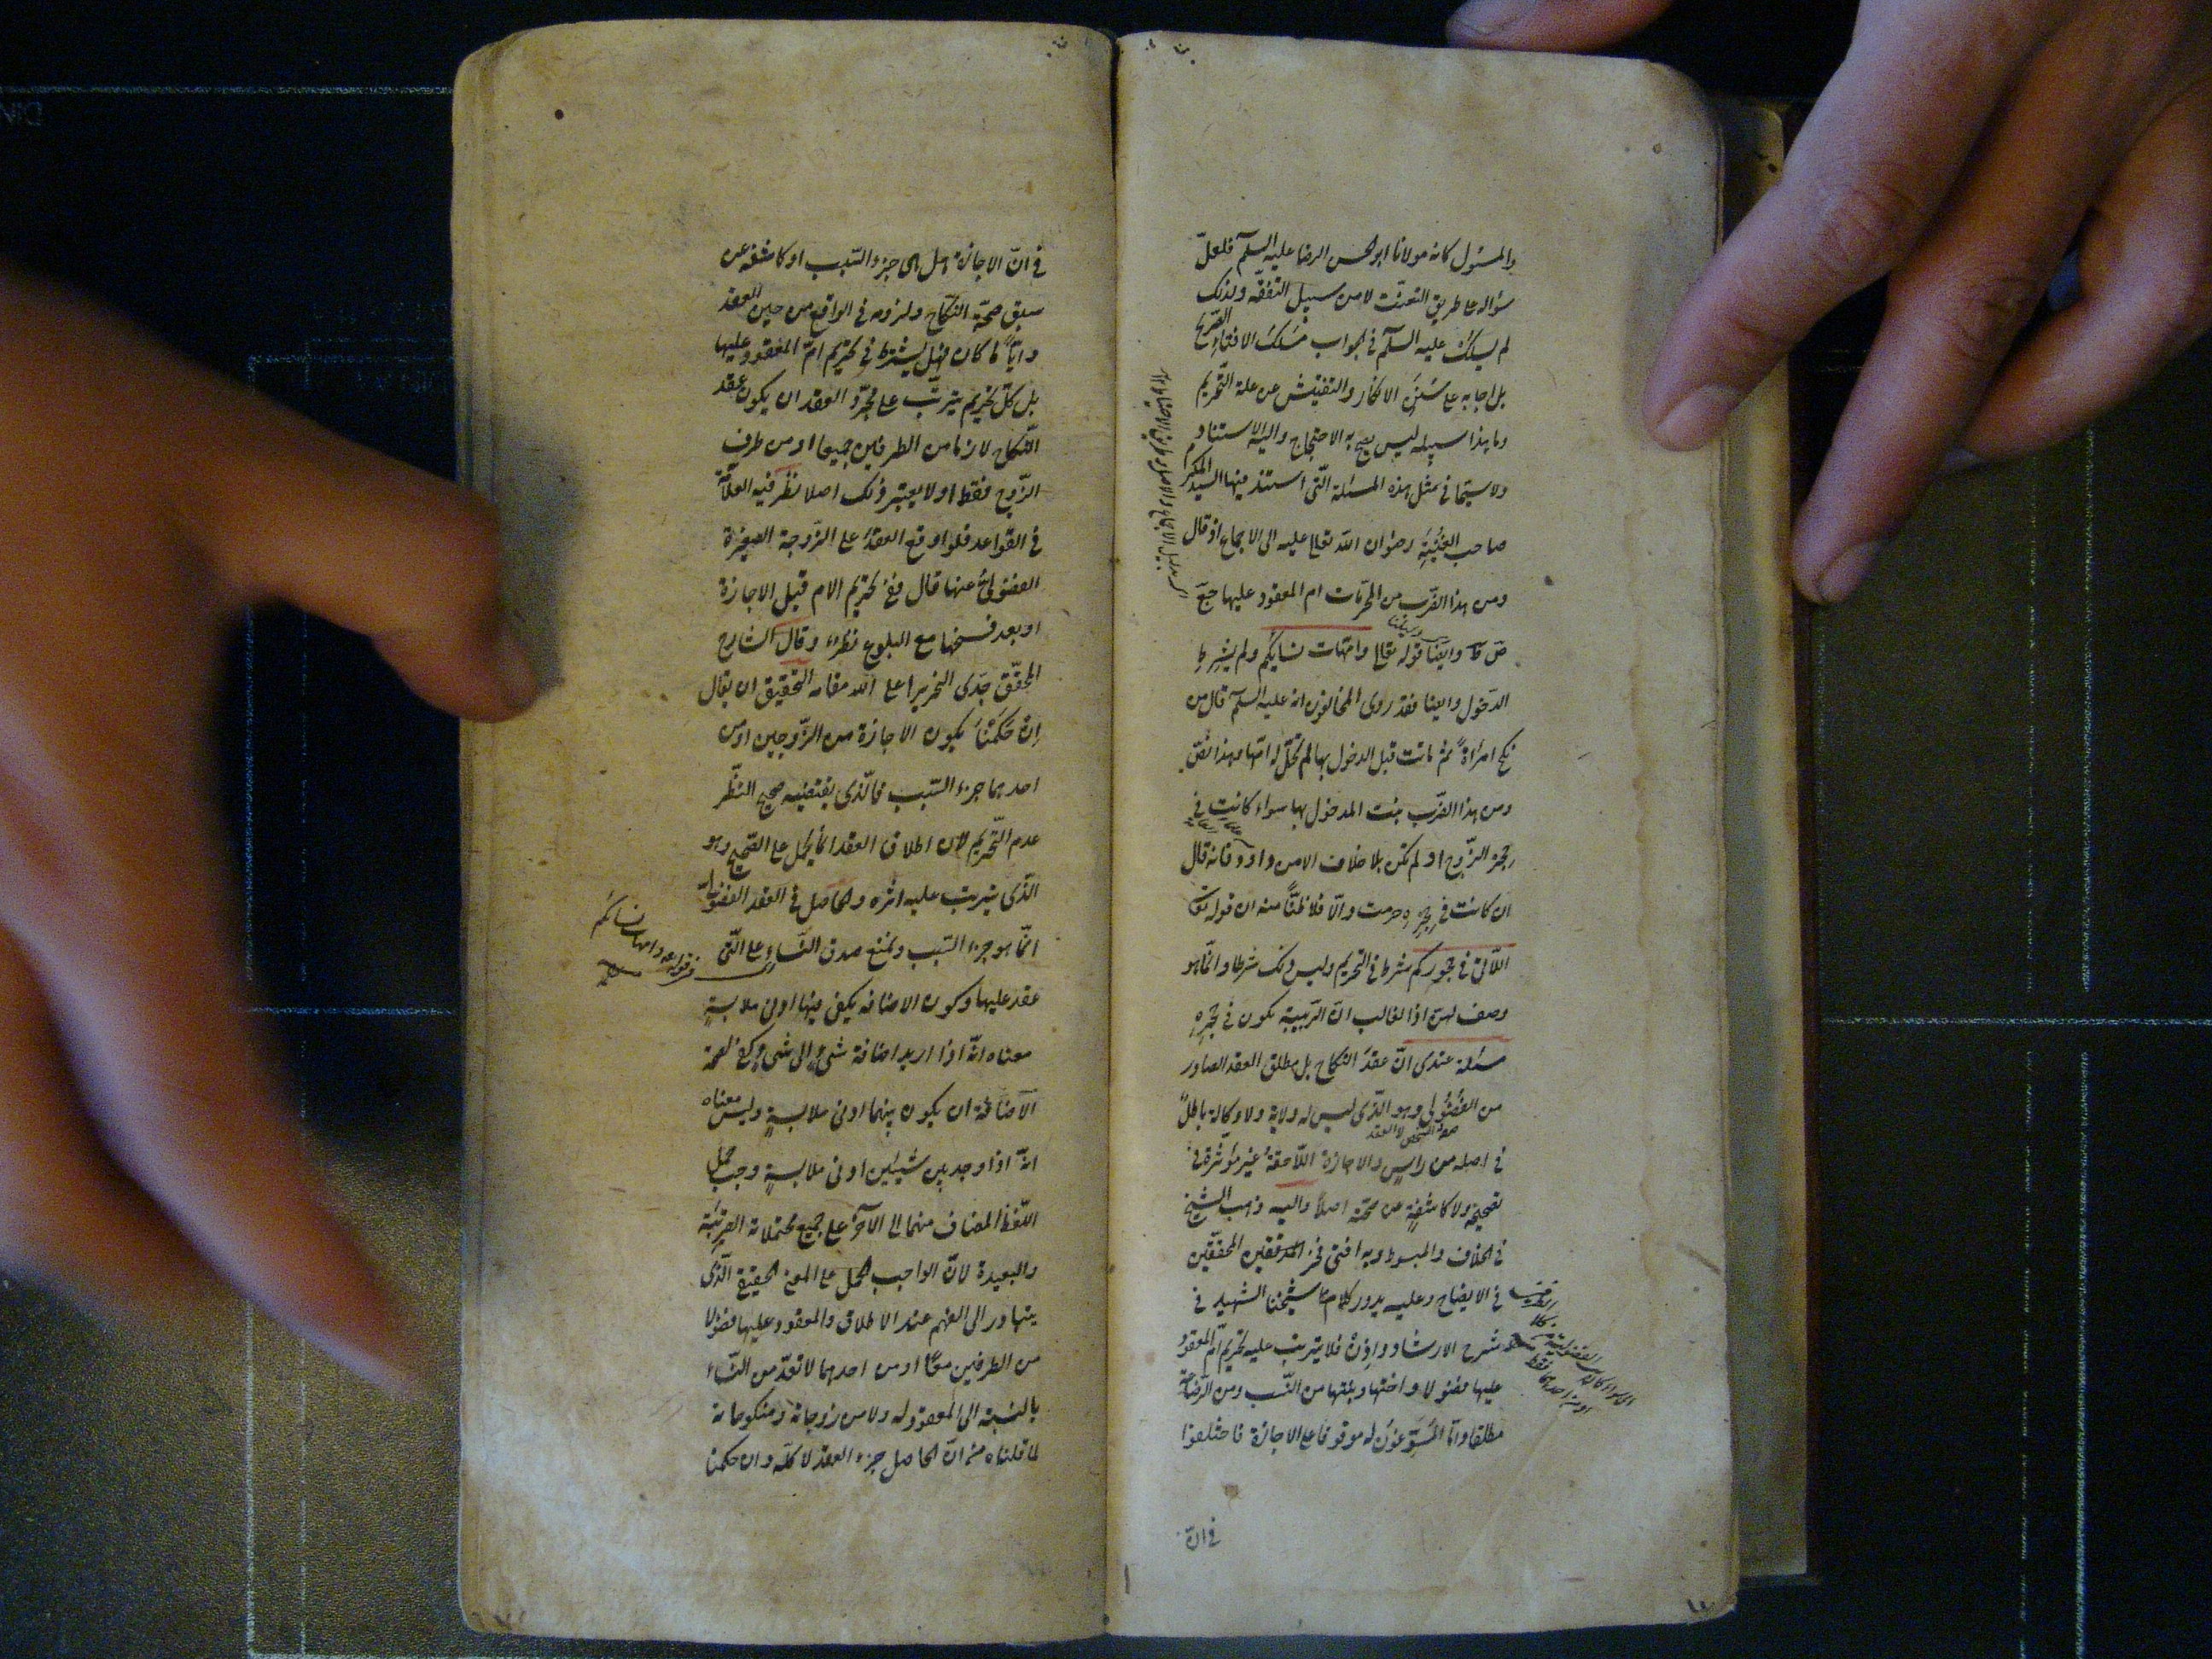 والمسئول كانه مولانا ابو الحسن الرضا عليه السلم فلعلّ
سؤاله على طريق التعنّت لا من سبيل التفقّه ولذلك
لم يسلك عليه السلم في الجواب مسلك الافتاء الصّريح
بل اجابه على سنن الانكار والتفتيش عن علة التّحريم
وما هذا سبيله ليس يصح به الاحتجاج واليه الاستناد
ولا سيّما في مثل هذه المسئلة الّتى استند فيها السيد المكرم
صاحب الغنية رضوان الله تعالى عليه الى الاجماع اذ قال
ومن هذا الضّرب من المحرّمات ام المعقود عليها
وايضا قوله تعالى وامّهات نسايكم ولم يشرط
الدّخول وايضا فقد روى المخالفون انه عليه السلم قال من
نكح امراة ثم ماتت قبل الدخول بها لم تحلّ له امّها وهذا نصّ
ومن هذا الضّرب بنت المدخول بها سواء كانت في
حجر الزّوج او لم تكن بلا خلاف الا من داود فانه قال
ان كانت في حجره حرمت والّا فلا ظنّاً منه ان قوله تعالى
اللّاتى في حجوركم شرط في التحريم وليس ذلك شرطا وانّما هو
وصف لهنّ اذ الغالب انّ الرّبيبة تكون في حجره
مسئلة عندى انّ عقد النكاح بل مطلق العقد الصادر
من الفضولى وهو الّذى ليس له ولاية ولا وكالة باطل
صفة الشخص لا العقد
في اصله من راس والاجازة اللّاحقة غير مؤثرة في
تصحيحه ولا كاشفة عن صحّته اصلاً واليه ذهب الشيخ
في الخلاف والمبسوط وبه افتى فخر المدققين المحقّقين
في الايضاح وعليه يدور كلام شيخنا الشهيد في
شرح الارشاد واذن فلا يترتب عليه تحريم امّ المعقود
عليها فضولا واختها وبنتها من النّسب ومن الرّضاعة
مطلقا وامّا المسوّغون له موقوفا على الاجازة فاختلفوا
في انّ
في انّ الاجازة هل هى جزء السّبب او كاشفة عن
سبق صحّة النّكاح ولزومه في الواقع من حين العقد
وايّاً ما كان فهل يشترط في تحريم امّ المعقود عليها
بل كلّ تحريم يترتّب على مجرّد العقد ان يكون عقد
النّكاح لازما من الطرفين جميعا او من طرف
الزّوج فقط او لا يعتبر ذلك اصلا نظر فيه العلّامة
في القواعد فلو اوقع العقد على الزّوجة الصغيرة
الفضولىّ عنها قال ففى تحريم الام قبل الاجازة
او بعد فسخها مع البلوغ نظر وقال الشارح
المحقّق جدّى النحرير اعلى الله مقامه التحقيق ان يقال
ان حكمنا بكون الاجازة من الزّوجين او من
احدهما جزء السّبب فالّذى يقتضيه صحيح النظر
عدم التّحريم لان اطلاق العقد انّما يحمل على الصّحيح وهو
الّذى يترتب عليه اثره والحاصل في العقد الفضولى
انّما هو جزء السّبب ولمنع صدق النّساء على الّتى
في قوله تعالى وامهات نسائكم
عقد عليها وكون الاضافة يكفى فيها ادنى ملابسة
معناه انّه اذا اريد اضافة شىء الى شىء كفى لصحة
الاضافة ان يكون بينهما ادنى ملابسة وليس معناه
انّه اذا وجد بين شيئين ادنى ملابسة وجب حمل
اللّفظ المضاف منهما الى الآخر على جميع محتملاته القريبة
والبعيدة لانّ الواجب الحمل على المعنى الحقيقى الّذى
يتبادر الى الفهم عند الاطلاق والمعقود عليها فضولا
من الطرفين معاً او من احدهما لا تعدّ من النّساء
بالنسبة الى المعقود له ولا من زوجاته ومنكوحاته
لما قلناه من انّ الحاصل جزء العقد لا كلّه وان حكمنا